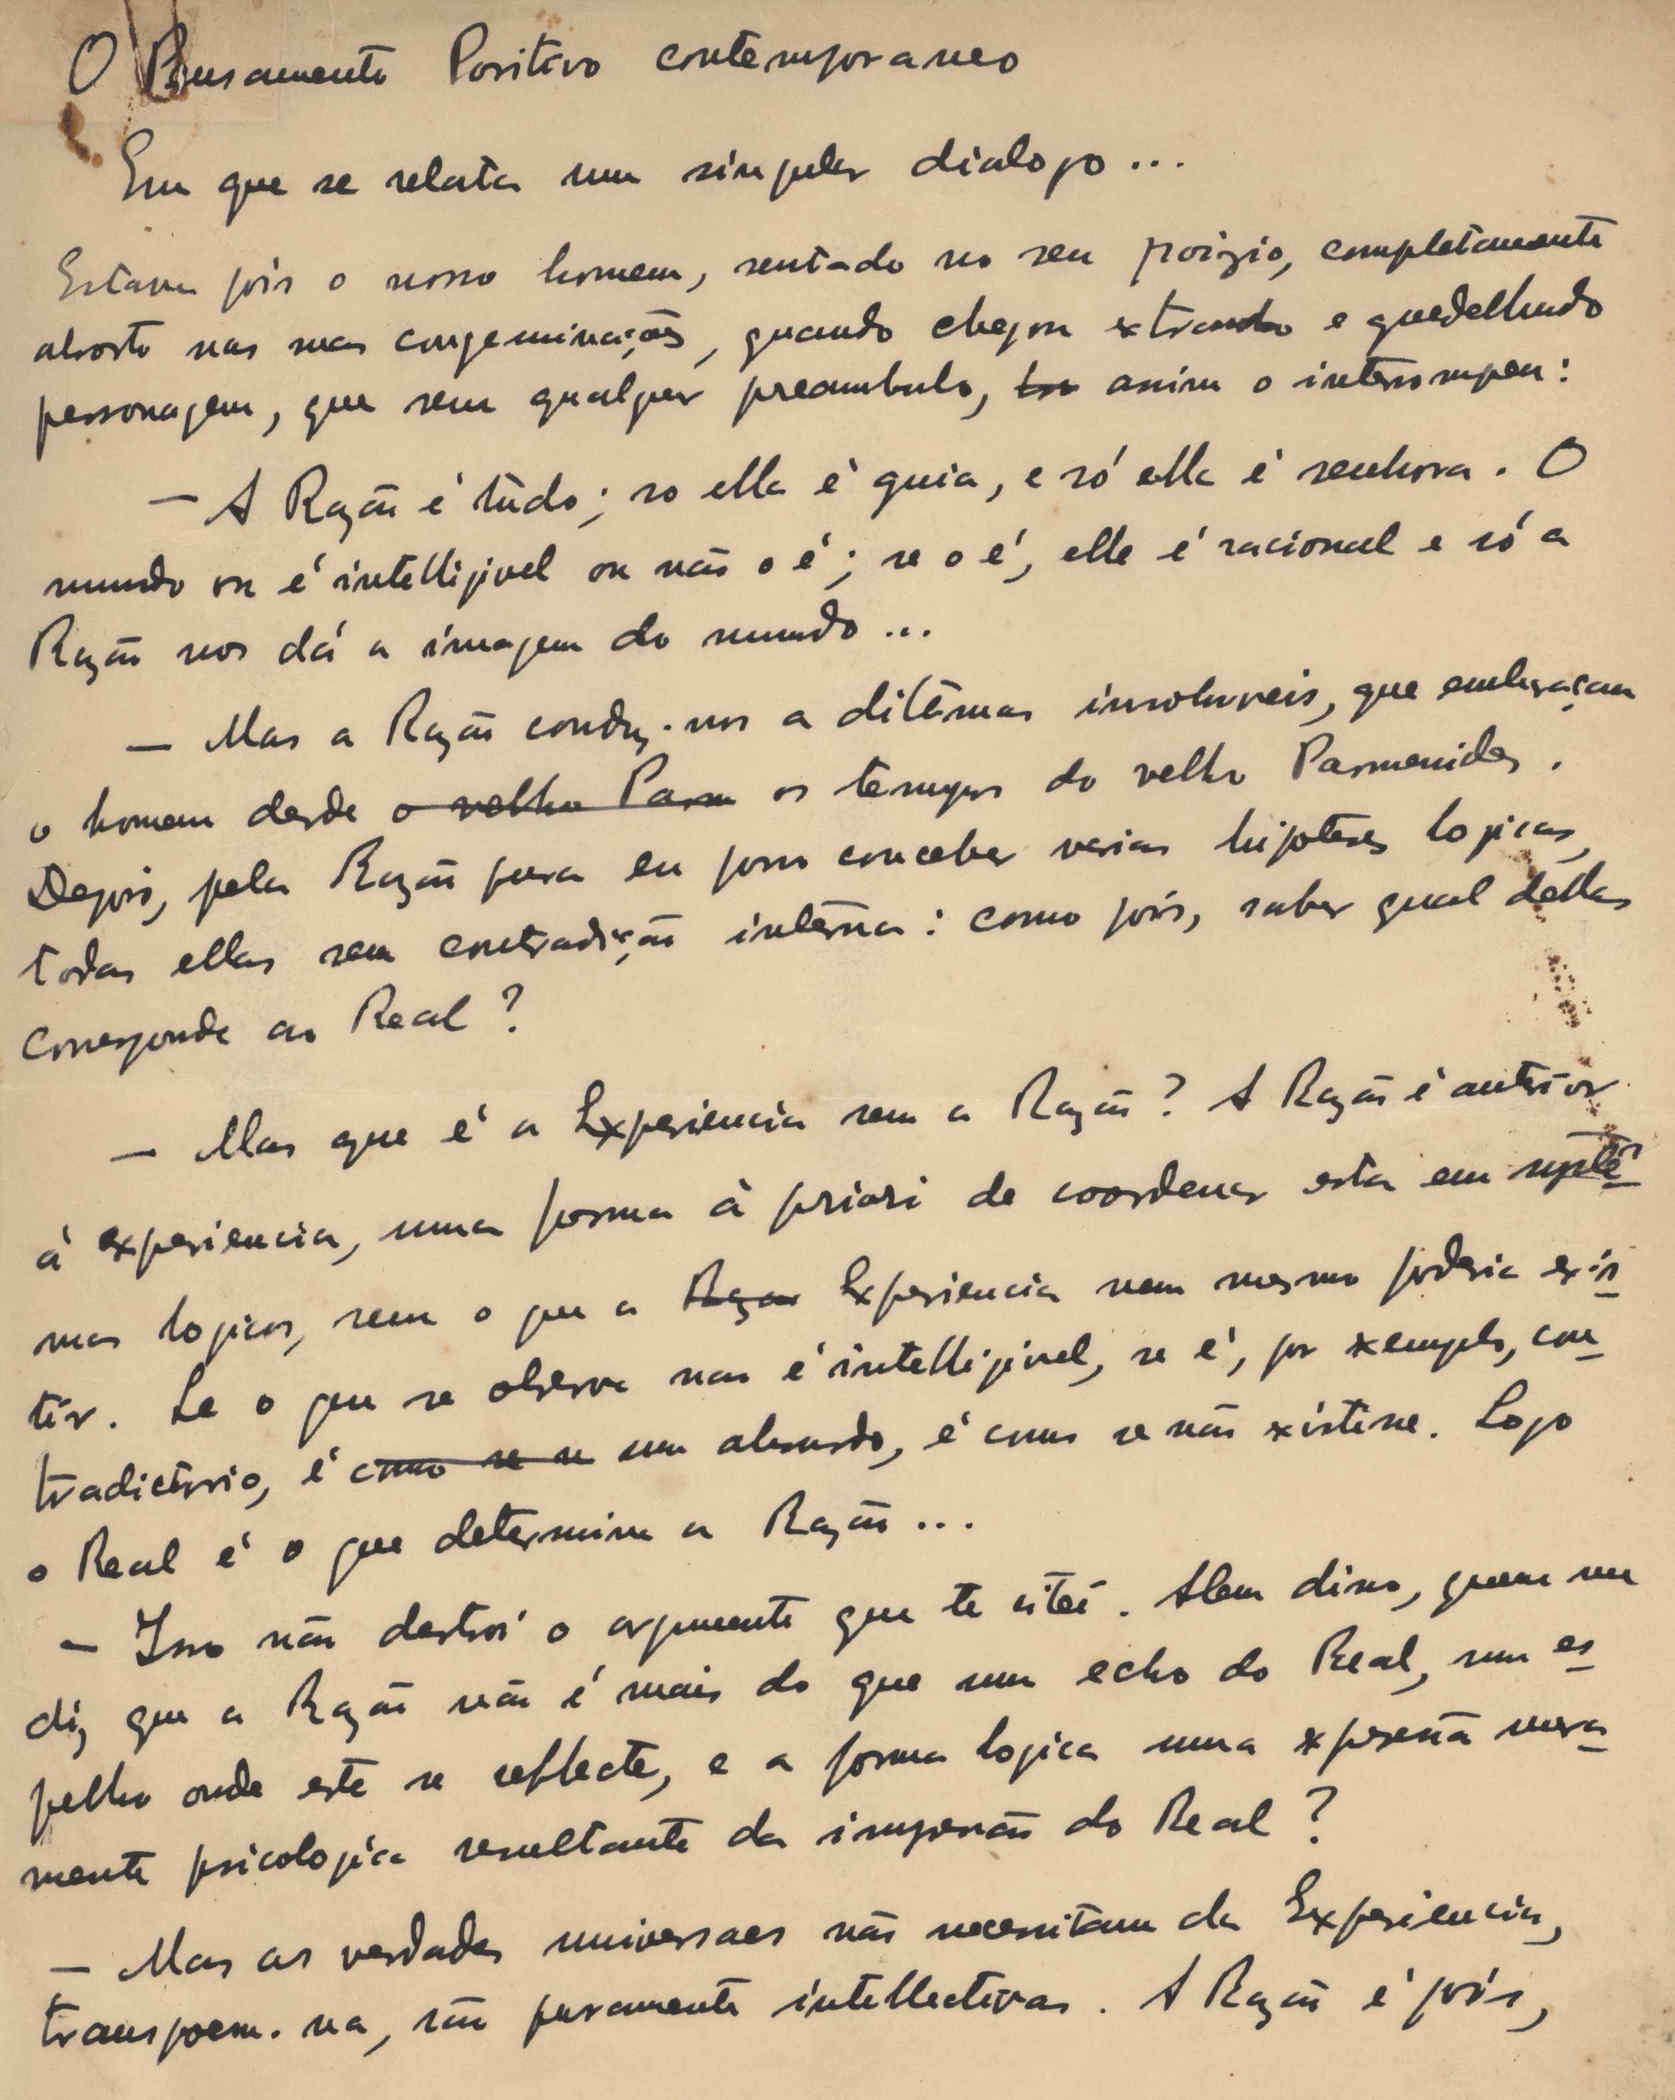 O Pensamento Positivo contemporaneo
Em que se relata um singular dialogo...
Estava pois o nosso homem, sentado no seu poizio, completamente
absorto nas suas congeminações, quando chegou extranho e guedelhudo
personagem, que sem qualquer preambulo, assim o interrompeu:
— A Razão é tudo; so ella é guia, e só ella é senhora. O
mundo ou é intelligivel ou não o é; se o é, elle é racional e só a
Razão nos dá a imagem do mundo...
— Mas a Razão conduz-nos a dilemas insoluveis, que embaraçam
o homem desde o velho Parm os tempos do velho Parmenides.
Depois, pela Razão pura eu posso conceber varias hipoteses logicas,
todas ellas sem contradição interna: como pois, saber qual dellas
corresponde ao Real?
— Mas que é a Experiencia sem a Razão? A Razão é anterior
á experiencia, uma forma á priori de coordenar esta em systê-
mas logicos, sem o que a Razao Experiencia nem mesmo poderia exis-
tir. Se o que se observa nao é intelligivel, se é, por exemplo, con-
tradictorio, é como se n um absurdo, é como se não existisse. Logo
o Real é o que determina a Razão...
— Isso não destroi o argumento que te citei. Alem disso, quem me
diz que a Razão não é mais do que um echo do Real, um es-
pelho onde este se reflecte, e a forma logica uma expressão mera-
mente psicologica resultante da impressão do Real?
— Mas as verdades universaes não necessitam da Experiencia,
transpoem-na, são puramente intellectivas. A Razão é pois,